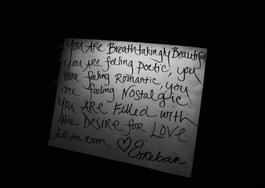 You are Breathtakingly Beautiful
you are feeling Poetic, you
are feeling Romantic, you
are feeling Nostalgic.
you are Filled with
the Desire for Love
fill the room ♡ Esteban